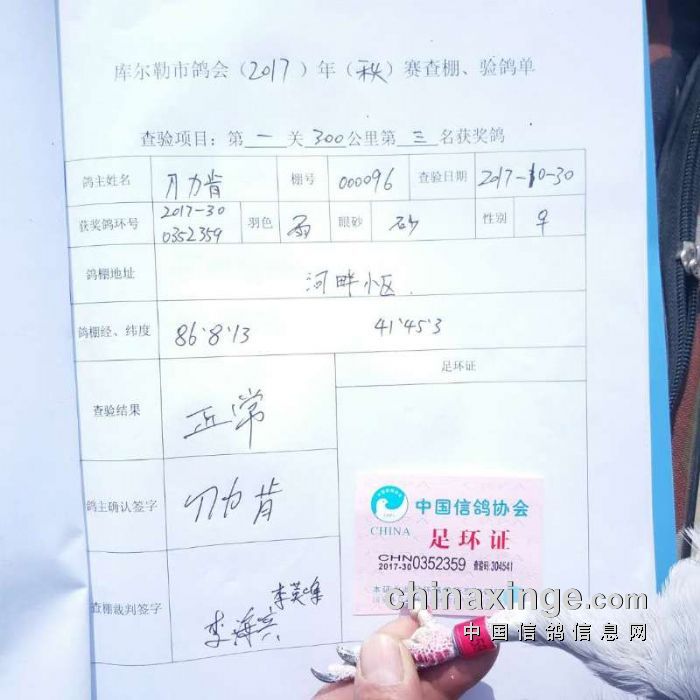 库尔勒市鸽会(2017)年(秋)赛查棚、验鸽单
查验项目:第一关300公里第三名获奖鸽
鸽主姓名 刀力肯 棚号 000096 查验日期 2017-10-30
获奖鸽环号 2017-30 0352359 羽色 雨 眼砂 砂 性别 ♀
鸽棚地址 河畔小区.
鸽棚经、纬度 86°8'13 41°45'3
足环证
查验结果 正常
鸽主确认签字 刀力肯
中国信鸽协会
CHINA
足环证
CHN
2017-30 0352359 查验码:304541
查棚裁判签字
chinaxinge.com
中国信鸽信息网